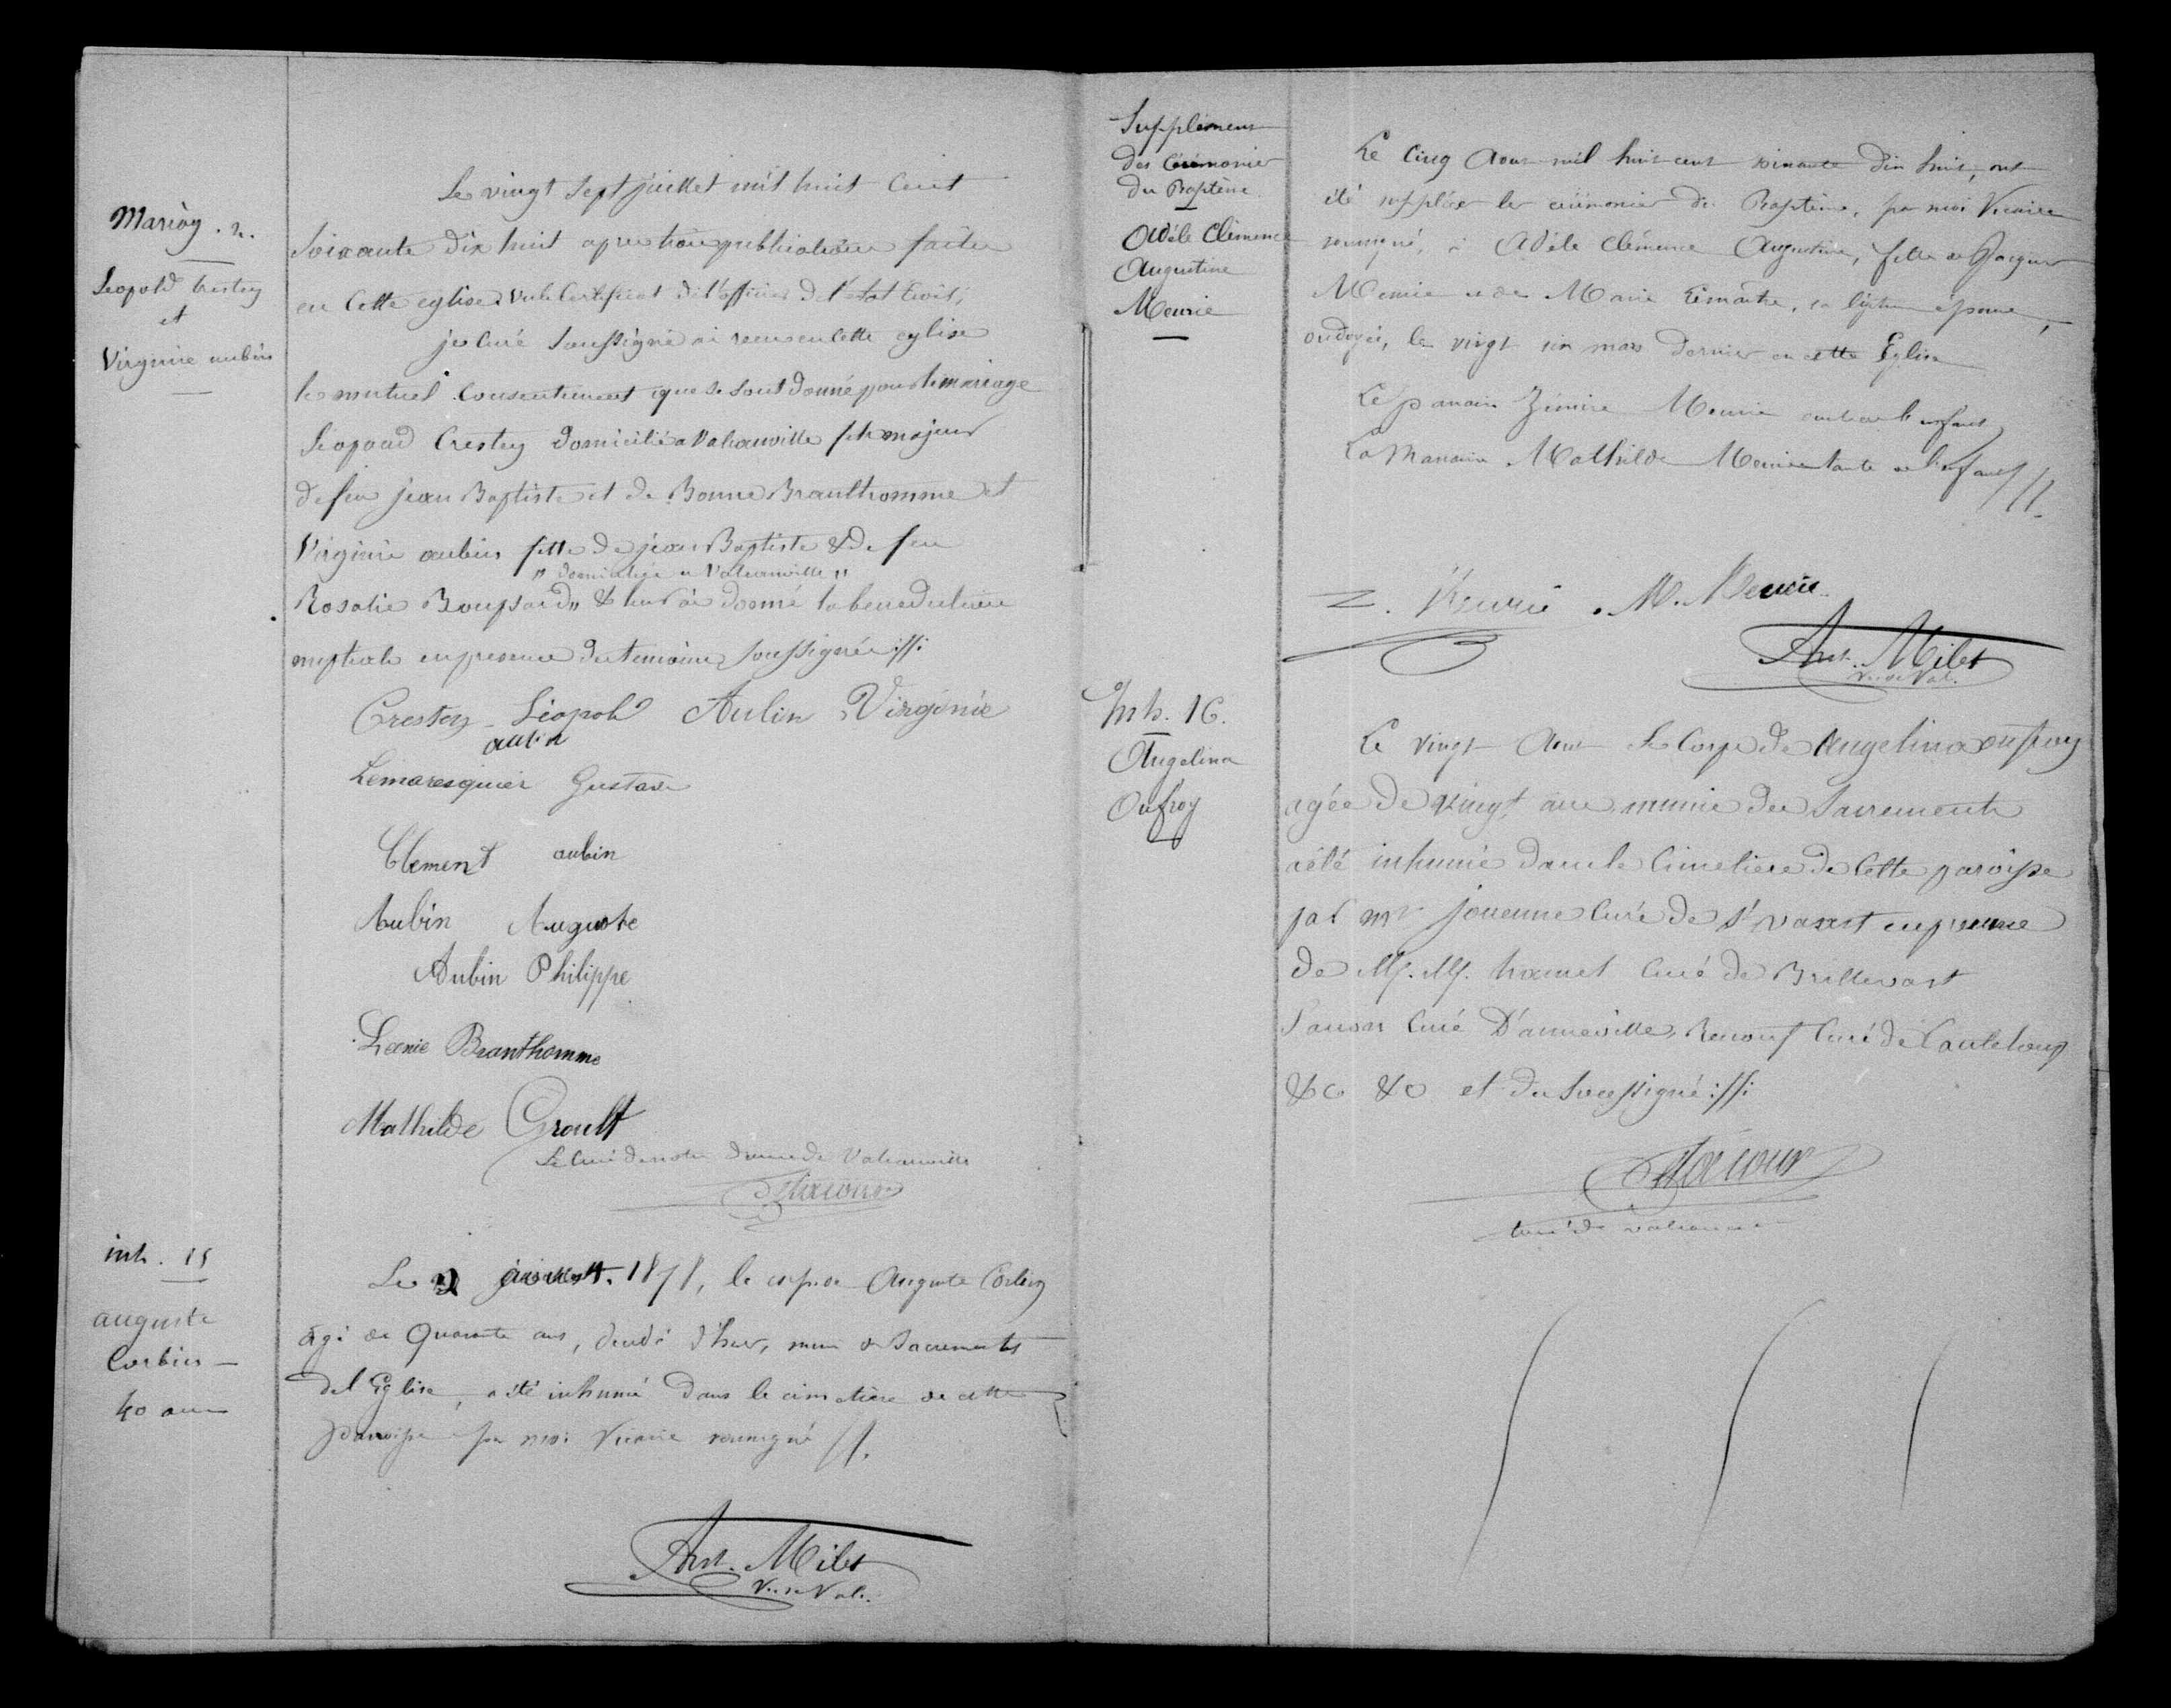 Mariag. 2.
Leopold Crestey
et
Virginie aubin
Le vingt Sept juillet mil huit Cent
Soixante Dix huit apres trois publications faites
en Cette eglise, vu le Certificat de l'officier de l'etat Civil,
je Curé Soussigné ai recu en Cette eglise
le mutuel Consentement que se sont donné pour le mariage
Leopold Crestey Domicilié a Valcanville fils majeur
de feu jean Baptiste et de Bonne Branthomme et
Virginie aubin fille de jean Baptiste & de feu
" Domiciliée a Valcanville "
Rosalie Boufsard " & leur ai donné la benediction
nuptiale en presence des temoins soussignés ://:
Crestey Léopold Aubin Virginie
aubin
Lemaresquier Gustave
Clement aubin
Aubin Auguste
Aubin Philippe
Léonie Branthomme
Mathilde Groult
Le Curé de notre Dame de Valcanville
inh. 15
auguste
Corbin
40 ans
Le 2 1878, le corps de Auguste Corbin
âgé de Quarante ans, décédé d'hier, muni des Sacrements
de l'Eglise, a été inhumé dans le cimetière de cette
paroisse par moi Vicaire soussigné //.
Ant. Milet
Vic. de Val.
Supplément
des Cérémonies
du Baptême
Adèle Clémence
Augustine
Meurie
Le Cinq Aout mil huit cent soixante dix huit, ont
été suppléées les cérémonies du Baptême, par moi Vicaire
soussigné, à Adèle Clémence Augustine, fille de Jacques
Meurie et de Marie Lemaître, sa légitime épouse,
ondoyée, le vingt six mars dernier en cette Eglise
Le parain Zémire Meurie oncle de l'enfant,
La Maraine Mathilde Meurie tante de l'enfant //.
Z. Meurie . M. Meurie
Ant. Milet
Vic. de Val.
Inh. 16.
Angelina
Onfroy
Le vingt Aout Le Corps de Angelina onfroy
agée de vingt ans munie des Sacrements
a été inhumé dans le Cimetiere de Cette paroisse
par Mr jouenne Curé de St vaast en presence
de M.M. hamel Curé de Brillevast
Curé D'anneville, Renouf Curé de Canteloup
&c &c et du Soussigné ://:
Curé de